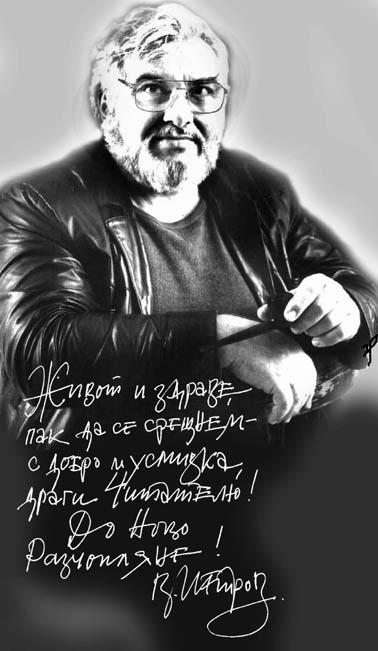 Живот и здраве,
пак да се срещнем –
с добро и усмивка,
драги Читателю!
До Ново
Разчопляне!
В. И. Петров.